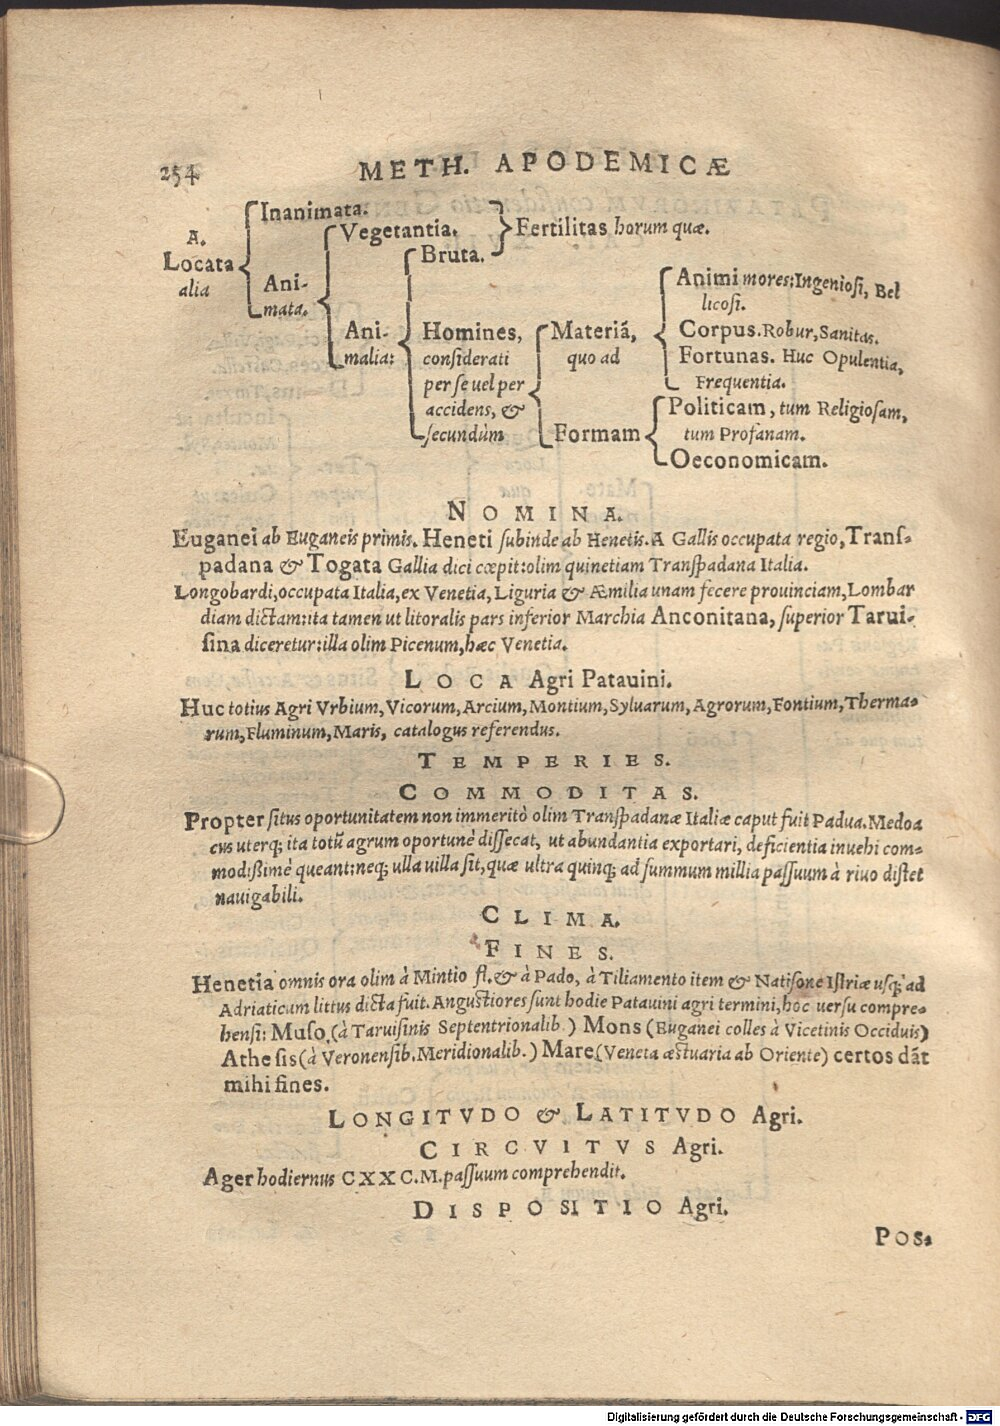 254
METH. APODEMICÆ
Inanimata.
Vegetantia.
Fertilitas horum quæ.
A.
Bruta.
Locata
alia
Ani-
mata.
Animi mores: Ingeniosi, Bel
licosi.
Ani-
malia:
Homines,
considerati
per se uel per
accidens, &
secundùm
Materiã,
quo ad
Corpus. Robur, Sanitas.
Fortunas. Huc Opulentia,
Frequentia.
Politicam, tum Religiosam,
tum Profanam.
Formam
Oeconomicam.
NOMINA.
Euganei ab Euganeis primis. Heneti subinde ab Henetis. A Gallis occupata regio, Trans-
padana & Togata Gallia dici cœpit: olim quinetiam Transpadana Italia.
Longobardi, occupata Italia, ex Venetia, Liguria & Æmilia unam fecere prouinciam, Lombar
diam dictam: ita tamen ut litoralis pars inferior Marchia Anconitana, superior Tarui-
sina diceretur: illa olim Picenum, hæc Venetia.
LOCA Agri Patauini.
Huc totius Agri Vrbium, Vicorum, Arcium, Montium, Syluarum, Agrorum, Fontium, Therma-
rum, Fluminum, Maris, catalogus referendus.
TEMPERIES.
COMMODITAS.
Propter situs oportunitatem non immeritò olim Transpadanæ Italiæ caput fuit Padua. Medoa
cus uterq; ita totũ agrum oportunè dissecat, ut abundantia exportari, deficientia inuehi com-
modissimè queant: neq; ulla uilla sit, quæ ultra quinq; ad summum millia passuum à riuo distet
nauigabili.
CLIMA.
FINES.
Henetia omnis ora olim à Mintio fl. & à Pado, à Tiliamento item & Natisone Istriæ usq; ad
Adriaticum littus dicta fuit. Angustiores sunt hodie Patauini agri termini, hoc uersu compre-
hensi: Muso (à Taruisinis Septentrionalib.) Mons (Euganei colles à Vicetinis Occiduis)
Athesis (à Veronensib. Meridionalib.) Mare (Veneta æstuaria ab Oriente) certos dãt
mihi fines.
LONGITVDO & LATITVDO Agri.
CIRCVITVS Agri.
Ager hodiernus CXXC.M. passuum comprehendit.
DISPOSITIO Agri.
POS-
Digitalisierung gefördert durch die Deutsche Forschungsgemeinschaft - DFG